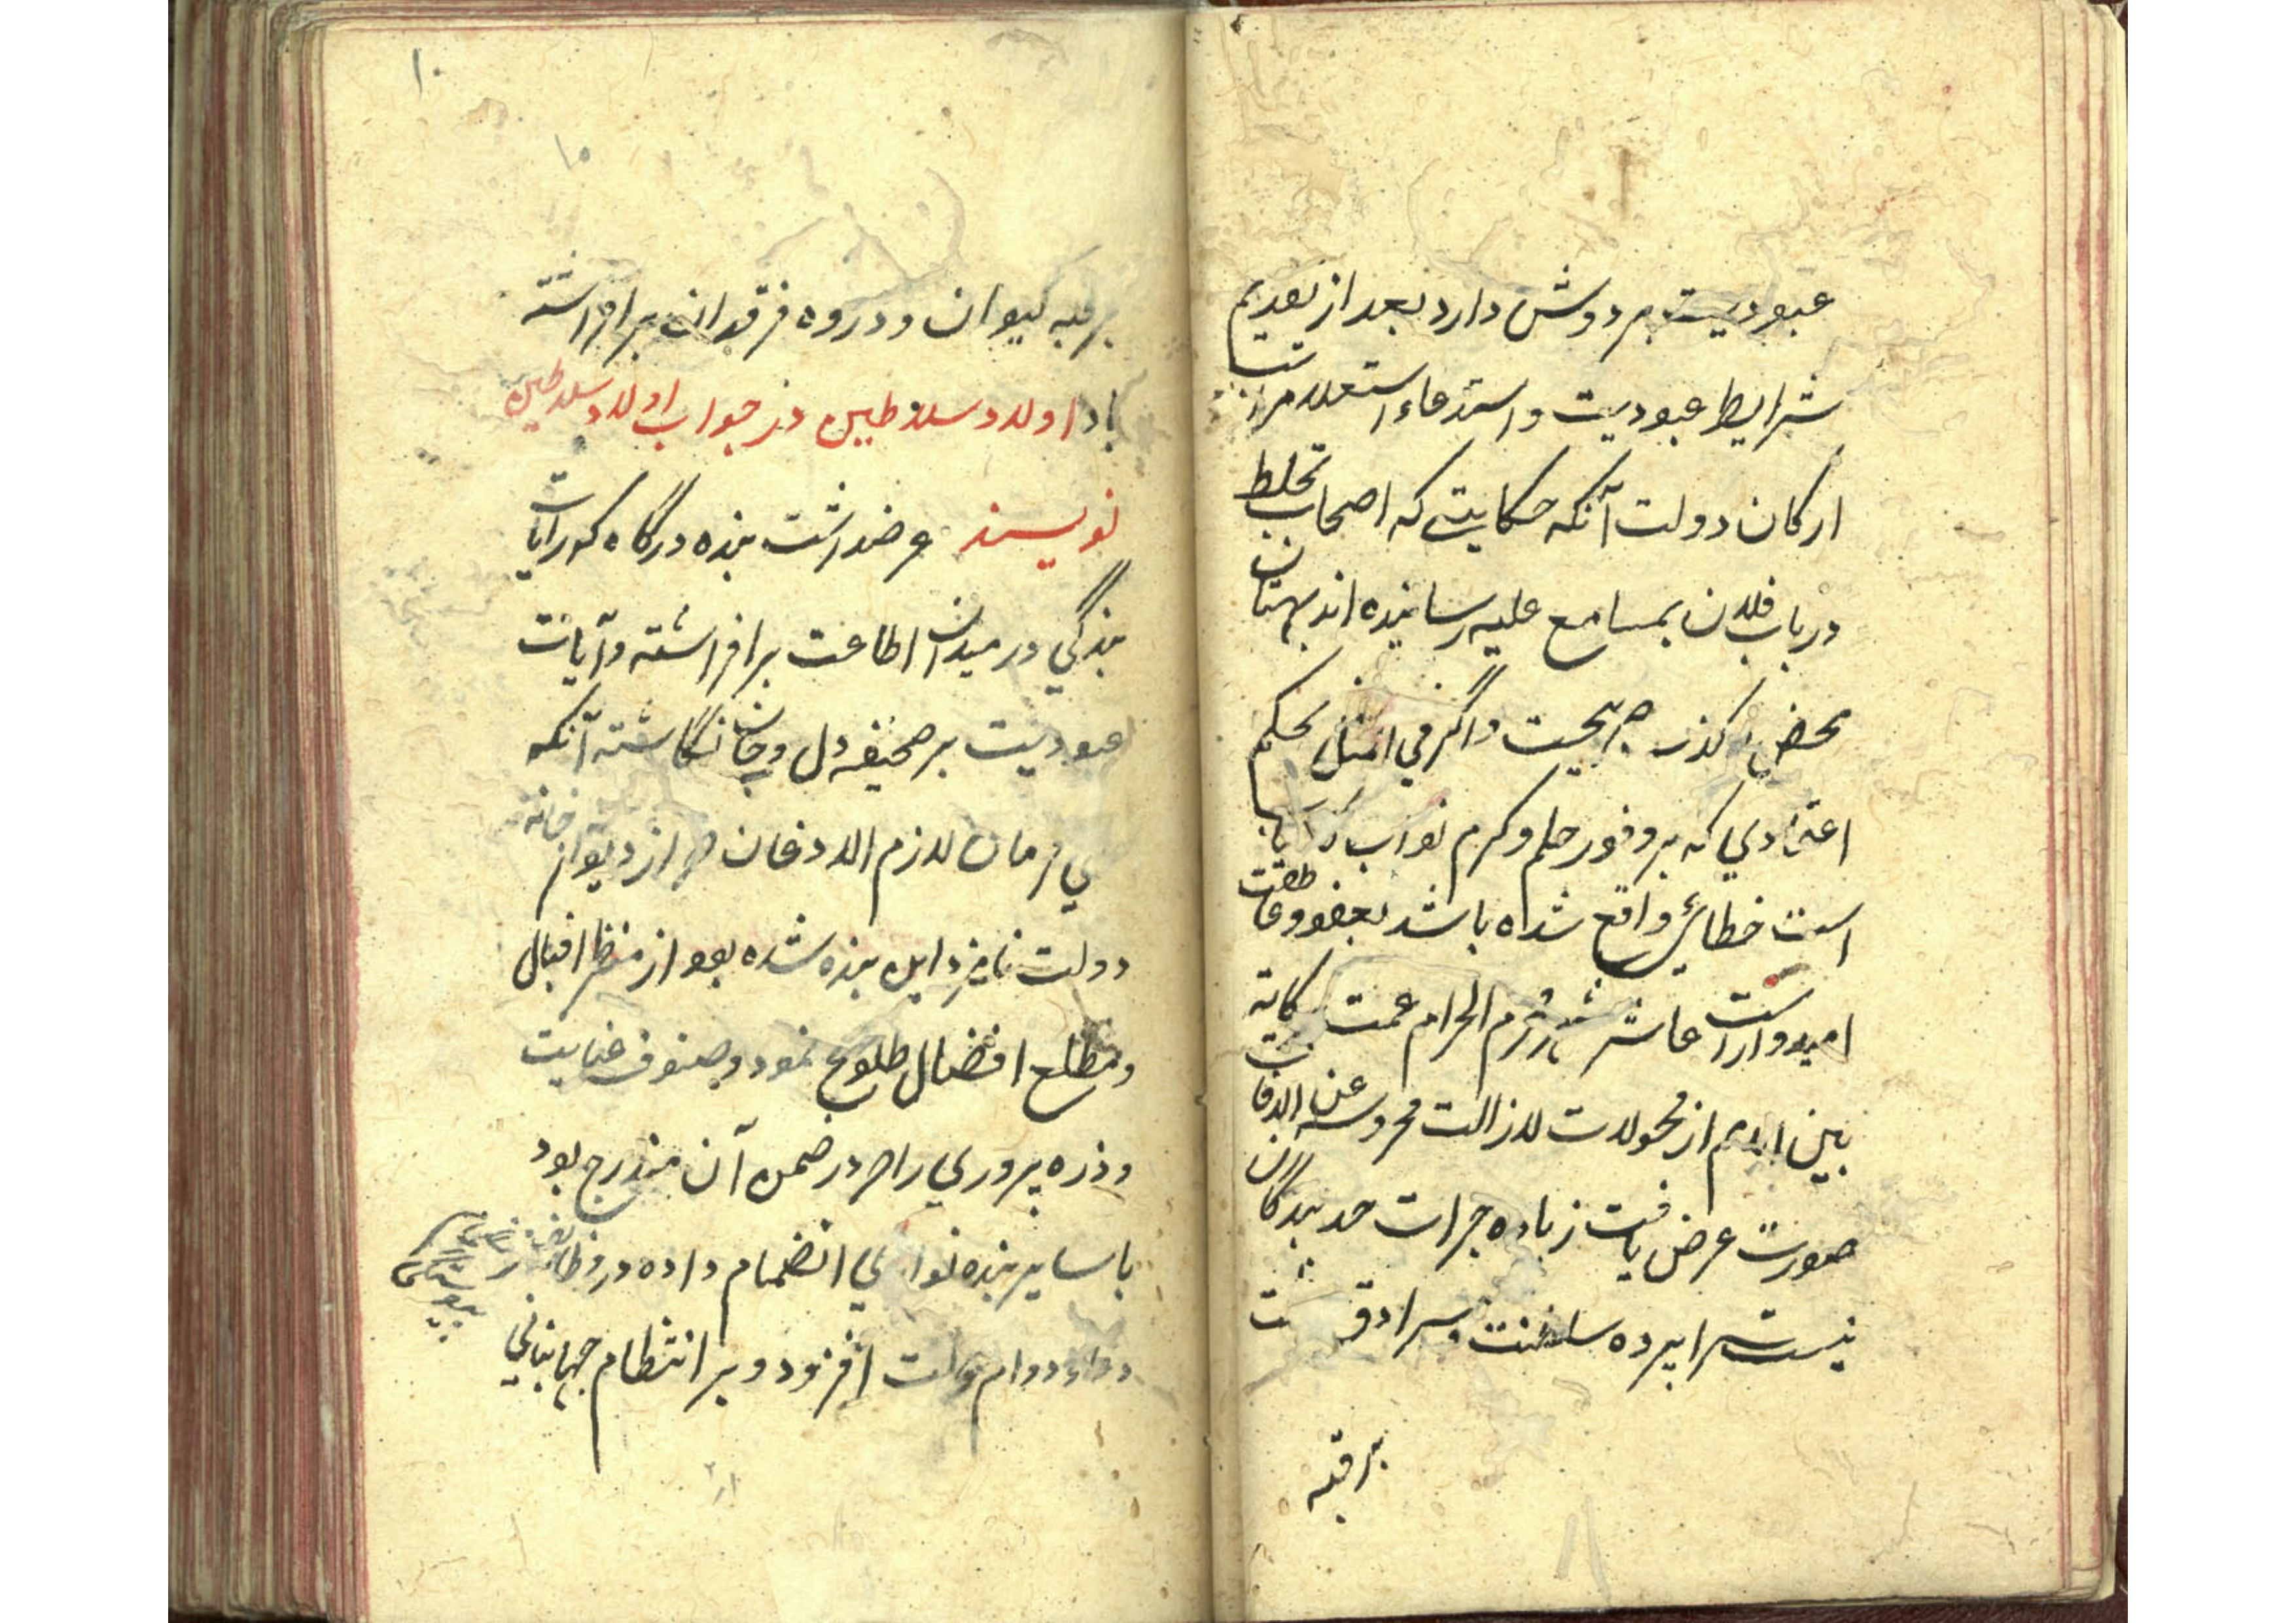 عبودیت بر دوش دارد بعد از تقدیم
شرایط عبودیت و استدعاء استعلامرات
ارکان دولت آنکه حکایتی که اصحاب تخلط
در باب فلان بمسامع علیه رسانیده اند بهتان
محض و کذب صریحست و اگر فی المثل بحکم
اعتمادی که بر وفور حلم و کرم نواب
است خطائی واقع شده باشد بعفو و عاطفت
امیدوارست عاشر شهر محرم الحرام عمت
بین الانام از محمولات لازالت محروسه عن الافات
صورت عرض یافت زیاده جرات حد بندگان
نیست سراپرده سلطنت و سرادق
بر قبه
۱۰
۱۰
بر قبه کیوان و ذروه فرقدان بر افراشته
باد اولاد سلاطین در جواب اولاد سلاطین
نویسند عرضداشت بنده درگاه که رایات
بندگی در میدان اطاعت برافراشته و آیات
عبودیت بر صحیفه دل و جان نگاشته آنکه
فرمان لازم الاذعان که از دیوانخانه
دولت نامزد این بنده شده بود از منظر اقبال
و مطلع افضال طلوع نمود و صنوف عنایت
و ذره پروری را که در ضمن آن مندرج بود
با سایر بنده نوازی انضمام داده در وظایف
دعاء دوام دولت افزود و بر انتظام جهانبانی